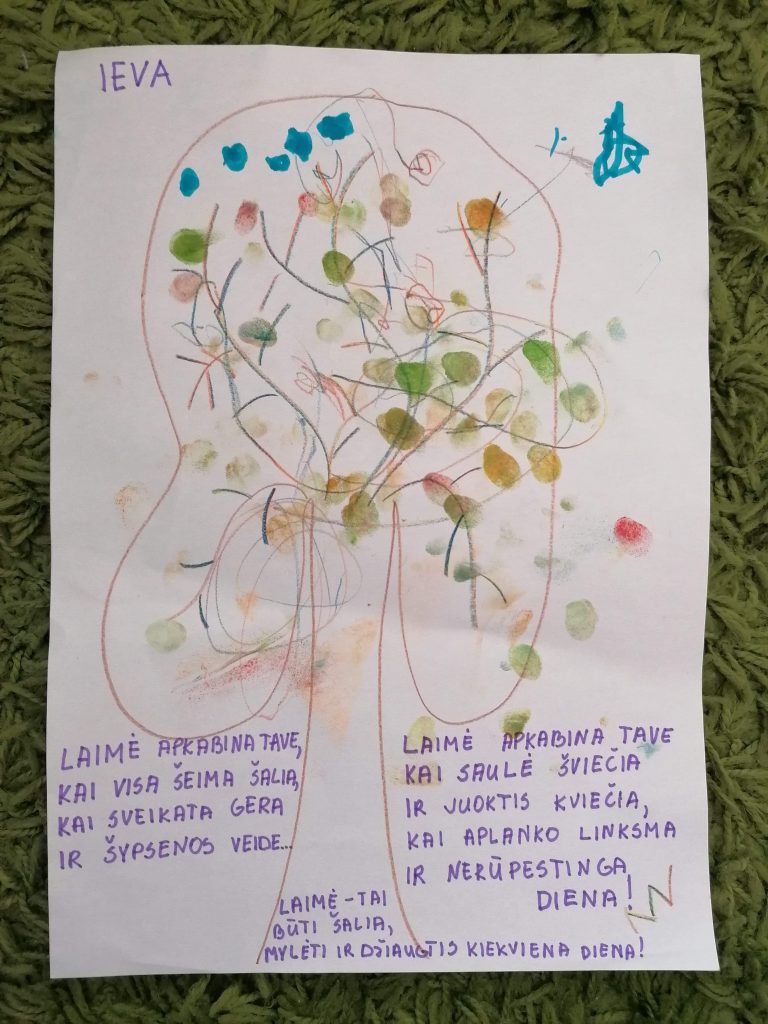 IEVA
LAIMĖ APKABINA TAVE,
KAI VISA ŠEIMA ŠALIA,
KAI SVEIKATA GERA
IR ŠYPSENOS VEIDE...
LAIMĖ APKABINA TAVE
KAI SAULĖ ŠVIEČIA
IR JUOKTIS KVIEČIA,
KAI APLANKO LINKSMA
IR NERŪPESTINGA
DIENA!
LAIMĖ - TAI
BŪTI ŠALIA,
MYLĖTI IR DŽIAUGTIS KIEKVIENA DIENA!